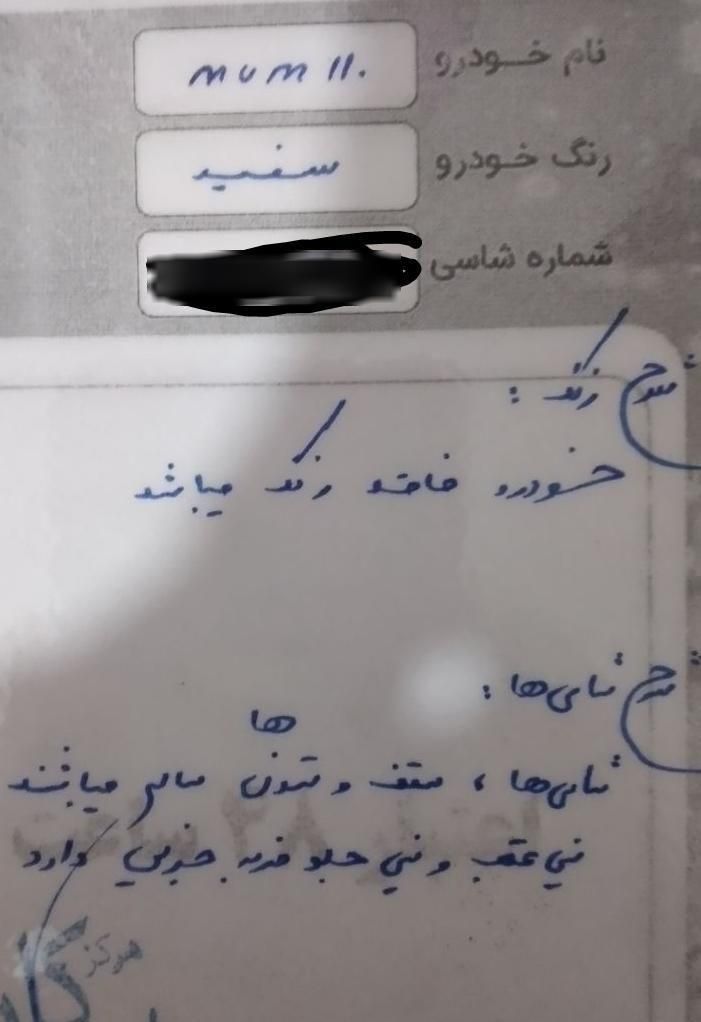 نام خودرو mvm 110
رنگ خودرو سفید
شماره شاسی
شرح رنگ :
خودرو فاقد رنگ میباشد
شرح شاسی‌ها :
شاسی‌ها ، سقف و ستون ها سالم میباشند
سینی عقب و سینی جلو ضربه جزیی دارد
اعتبار 48 ساعت
مرکز